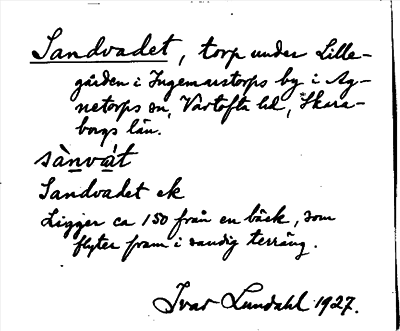 Sandvadet, torp under Lille-
gården i Ingemarstorps by i Ag-
netorps sn, Vartofta hd, Skara-
borgs län.
sànvàt
Sandvadet ek
Ligger ca 150 från en bäck, som
flyter fram i sandig terräng.
Ivar Lundahl 1927.